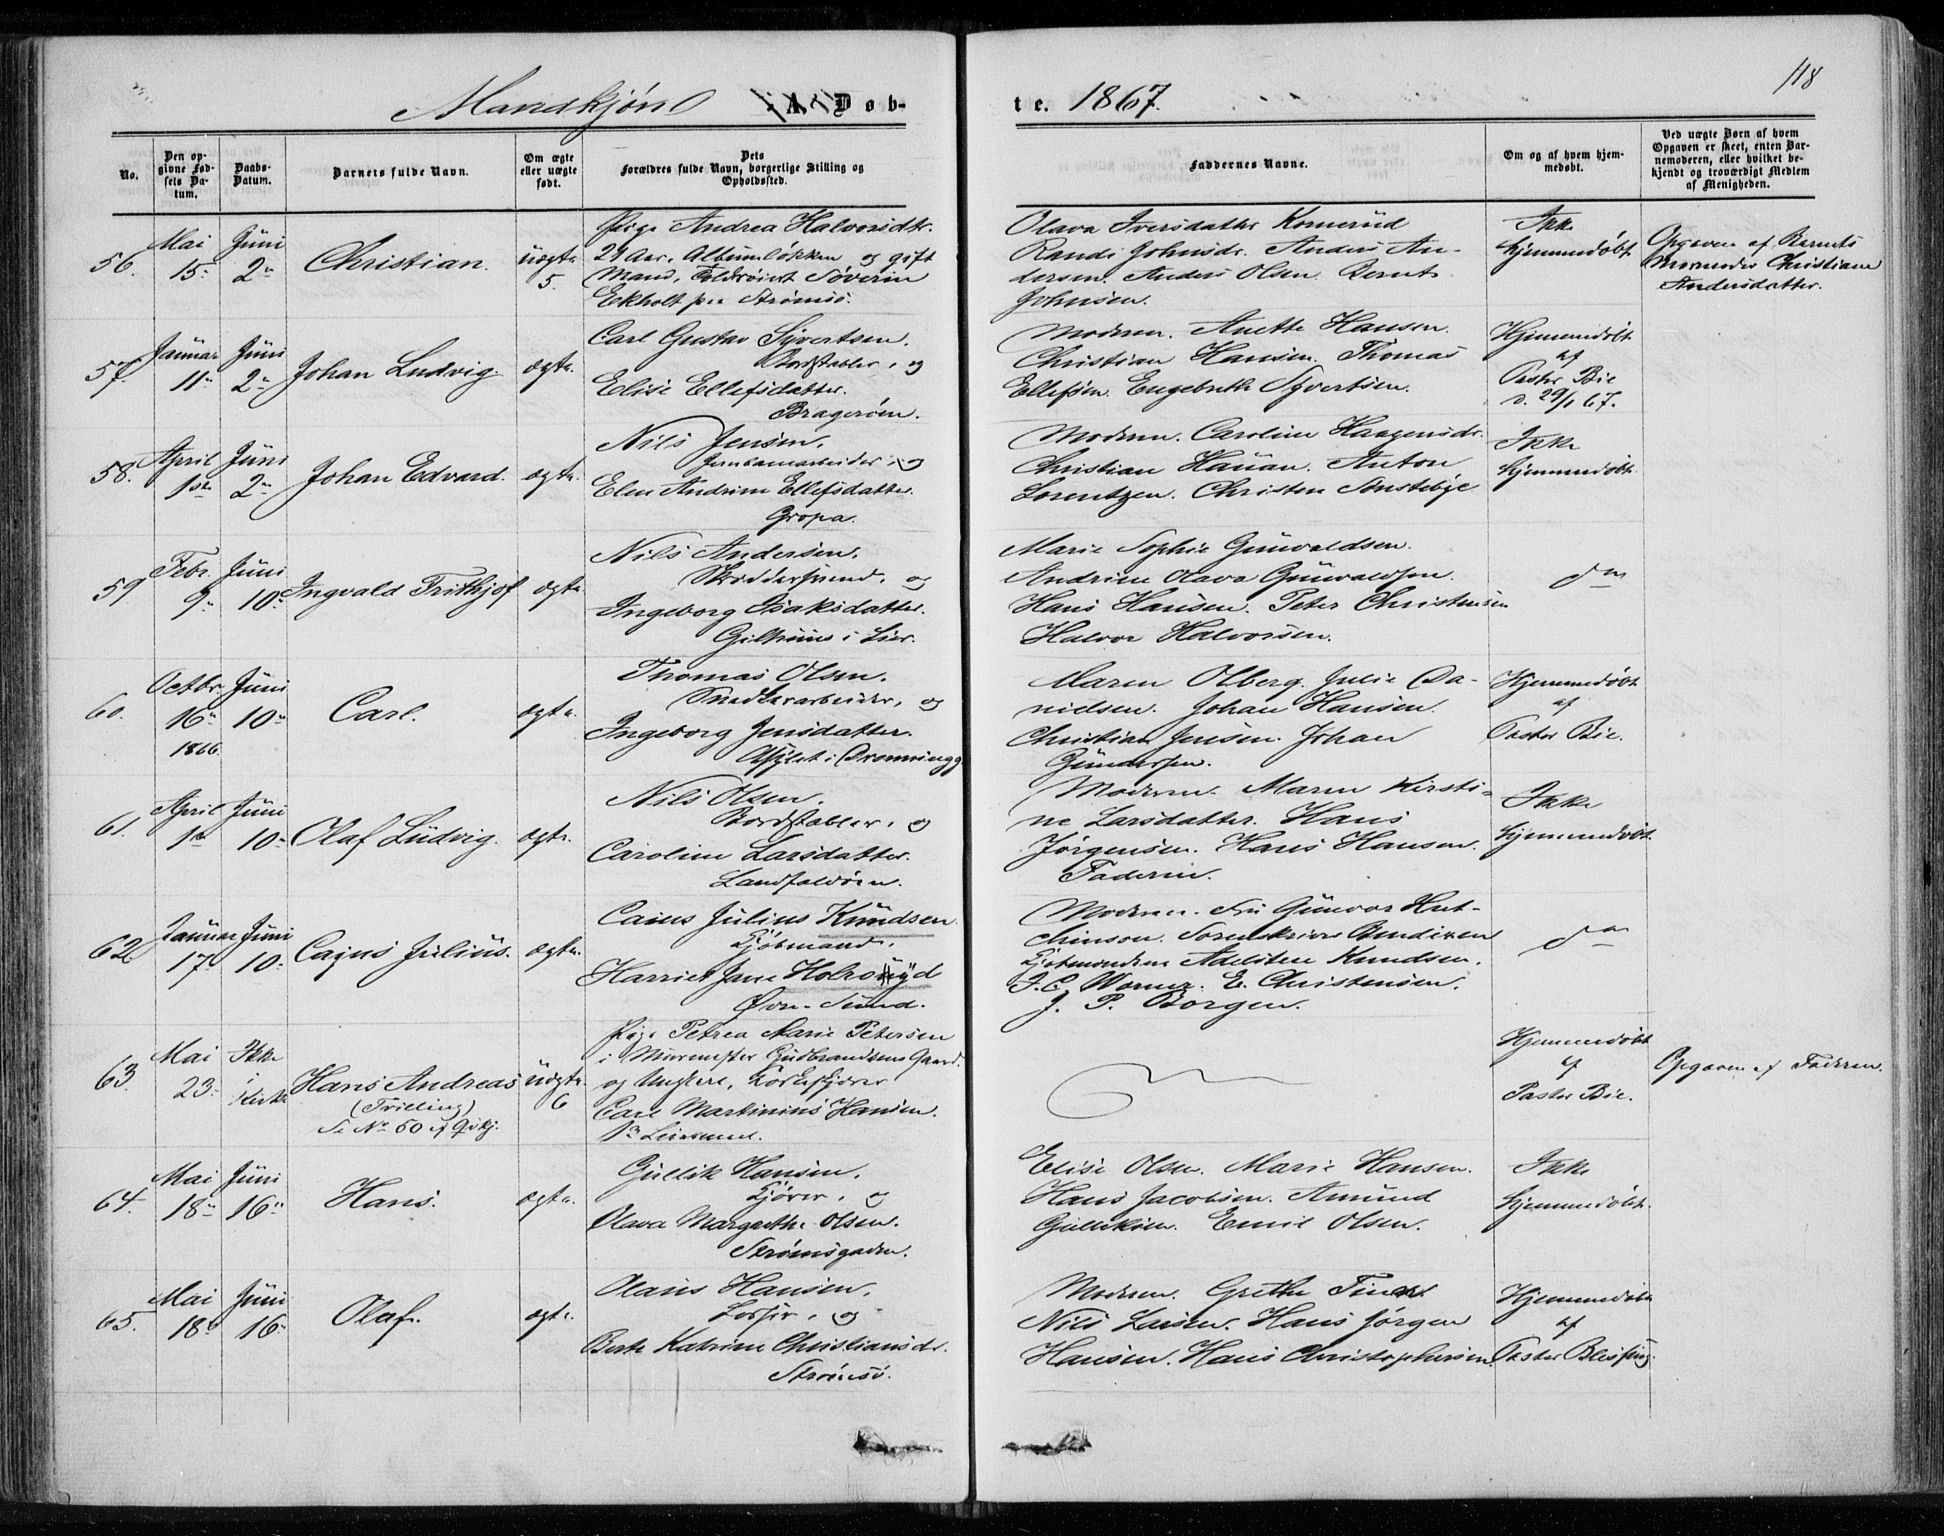 118
Mandkjøn A. Døb-
te. 1867.
No.
Den op-
givne Fød-
sels Da-
tum.
Daabs-
Datum.
Barnets fulde Navn.
Om ægte
eller uægte
født.
Dets
Forældres fulde Navn, borgerlige Stilling og
Opholdssted.
Faddernes Navne.
Om og af hvem hjem-
medøbt.
Ved uægte Børn af hvem
Opgaven er skeet, enten Bar-
nemoderen, eller hvilket be-
kjendt og troværdigt Medlem
af Menigheden.
56.
Mai
15
Juni
2
Christian.
uægte
5.
Pige Andrea Halvorsdtr.
29 Aar, Albumløkken og gift
Mand, Søverin
Eekholt paa Strømsø.
Olava Iversdatter Kornerud
Randi Johnsdr. Anders An-
dersen. Anders Olsen. Bernt
Johnsen.
Ikke
hjemmedøbt
Opgaven af Barnets
Mormoder Christiane
Andersdatter.
57.
Januar
11
Juni
2
Johan Ludvig.
ægte.
Carl Gustav Syvertsen.
Bordstabler, og
Elise Ellefsdatter.
Bragerøen.
Moderen. Anette Hansen.
Christian Hansen. Thomas
Ellefsen. Engebreth Syvertsen.
Hjemmedøbt
af
Pastor Bie
d. 29/1 67.
58.
April
1ste
Juni
2
Johan Edvard.
ægte.
Nils Jensen,
Jernbanearbeider, og
Elen Andrine Ellefsdatter.
Gropa.
Moderen. Caroline Haagensdr.
Christian Hauan. Anton
Lorentzen. Christen Sonstebye
Ikke
hjemmedøbt
59
Febr.
9
Juni
10
Ingvald Frithjof
ægte
Nils Andersen.
Skræddersvend, og
Ingeborg Isaksdatter.
Gilhuus i Lier.
Marie Sophie Gunvaldsen.
Andrine Olava Gunvaldsen.
Hans Hansen. Peter Christensen
Halvor Halvorsen.
do
60.
Octbr.
16
1866.
Juni
10
Carl.
ægte.
Thomas Olsen.
Snedkerarbeider, og
Ingeborg Jensdatter.
Asylet i Dronningg
Maren Olberg. Julie Da-
nielsen. Johan Hansen.
Christian Jensen. Johan
Gundersen.
Hjemmedøbt
af
Pastor Bie.
61.
April
1ste
Juni
10
Olaf Ludvig.
ægte.
Nils Olsen.
Bordstabler, og
Caroline Larsdatter.
Landfaldøen.
Moderen. Maren Kirsti-
ne Larsdatter. Hans
Jørgensen. Hans Hansen.
Faderen.
Ikke
hjemmedøbt.
62.
Januar
17
Juni
10
Cajus Julius.
ægte.
Caius Julius Knudsen.
Kjøbmand.
Harriet Jane Holroyd
Øvre-Sund.
Moderen. Fru Gunvor Hut-
chinson. Sorenskriver Bendixen
Kjøbmændene Adelsteen Knudsen.
J. C. Werner. E. Christensen.
J. P. Borgen.
do
63.
Mai
23
Ikke
i
Kirke
Hans Andreas
(Trilling)
Se No 50 af Qvkj.
uægte
6
Pige Petrea Marie Petersen
i Murmester Gudbrandsens Gaard.
og Ungkarl,
Carl Martinius Hansen.
Hjemmedøbt
af
Pastor Bie.
Opgaven af Faderen.
64.
Mai
18
Juni
16
Hans.
ægte.
Gullik Hansen,
Kjører, og
Olava Margrethe Olsen.
Strømsgaden.
Elise Olsen. Marie Hansen.
Hans Jacobsen. Amund
Gulliksen. Emil Olsen.
Ikke
hjemmedøbt.
65.
Mai
18
Juni
16
Olaf.
ægte.
Olaus Hansen,
og
Berthe Katrine Christiansdr.
Strømsø.
Moderen. Grethe
Nils Larsen. Hans Jørgen
Hansen. Hans Christophersen.
Hjemmedøbt
af
Pastor Blessing.